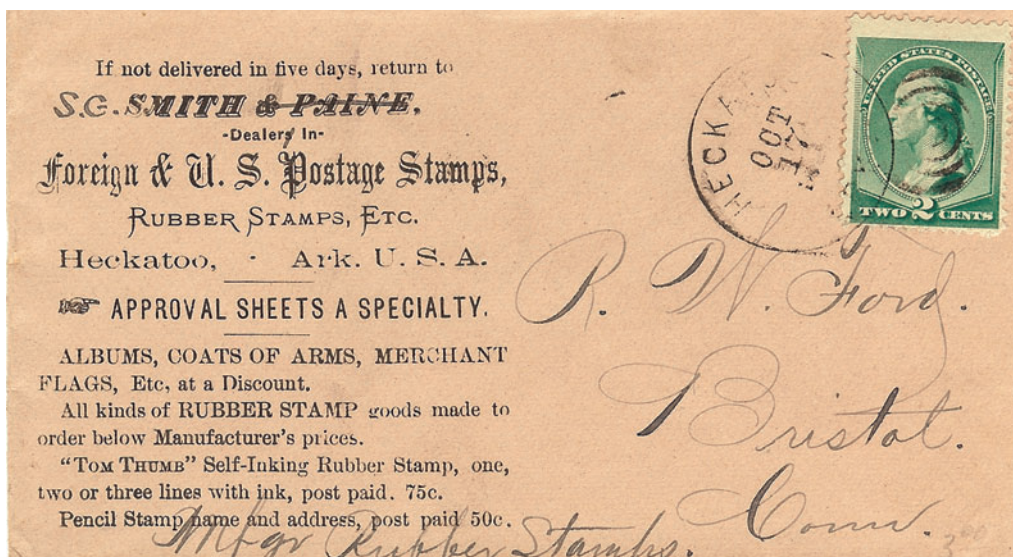 If not delivered in five days, return to
S.C. SMITH & PAINE.
-Dealers In-
Foreign & U. S. Postage Stamps,
RUBBER STAMPS, ETC.
Heckatoo, · Ark. U. S. A.
APPROVAL SHEETS A SPECIALTY.
ALBUMS, COATS OF ARMS, MERCHANT
FLAGS, Etc, at a Discount.
All kinds of RUBBER STAMP goods made to
order below Manufacturer's prices.
"TOM THUMB" Self-Inking Rubber Stamp, one,
two or three lines with ink, post paid. 75c.
Pencil Stamp name and address, post paid 50c.
Mfgr Rubber Stamps.
HECKA
OCT
17
UNITED STATES POSTAGE
TWO 2 CENTS
R. W. Ford.
Bristol.
Conn.